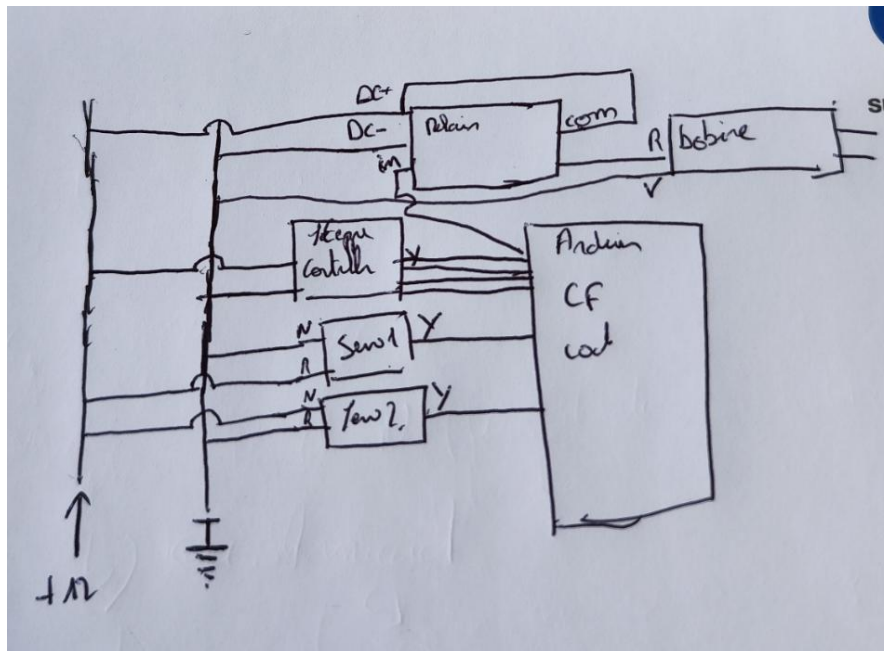 DC+
DC-
in
Relais
com
R
V
bobine
Controller
Y
Arduin
CF
cod
N
R
Servo 1
Y
N
R
Servo 2
Y